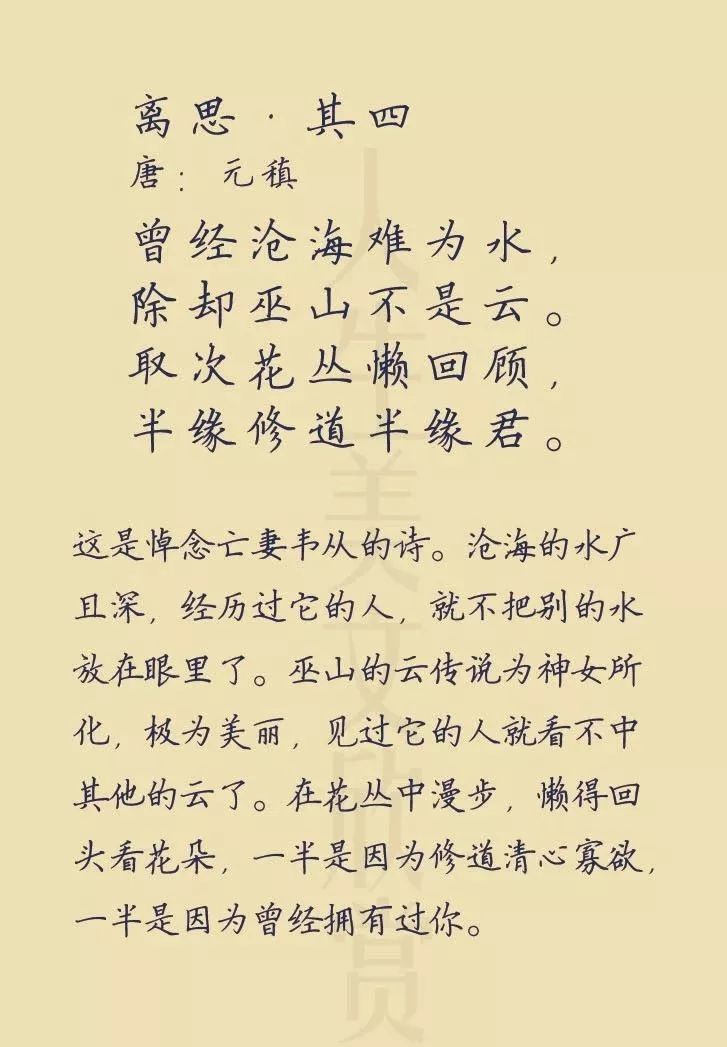 离思·其四
唐：元稹
曾经沧海难为水，
除却巫山不是云。
取次花丛懒回顾，
半缘修道半缘君。
这是悼念亡妻韦从的诗。沧海的水广
且深，经历过它的人，就不把别的水
放在眼里了。巫山的云传说为神女所
化，极为美丽，见过它的人就看不中
其他的云了。在花丛中漫步，懒得回
头看花朵，一半是因为修道清心寡欲，
一半是因为曾经拥有过你。
人生美文欣赏